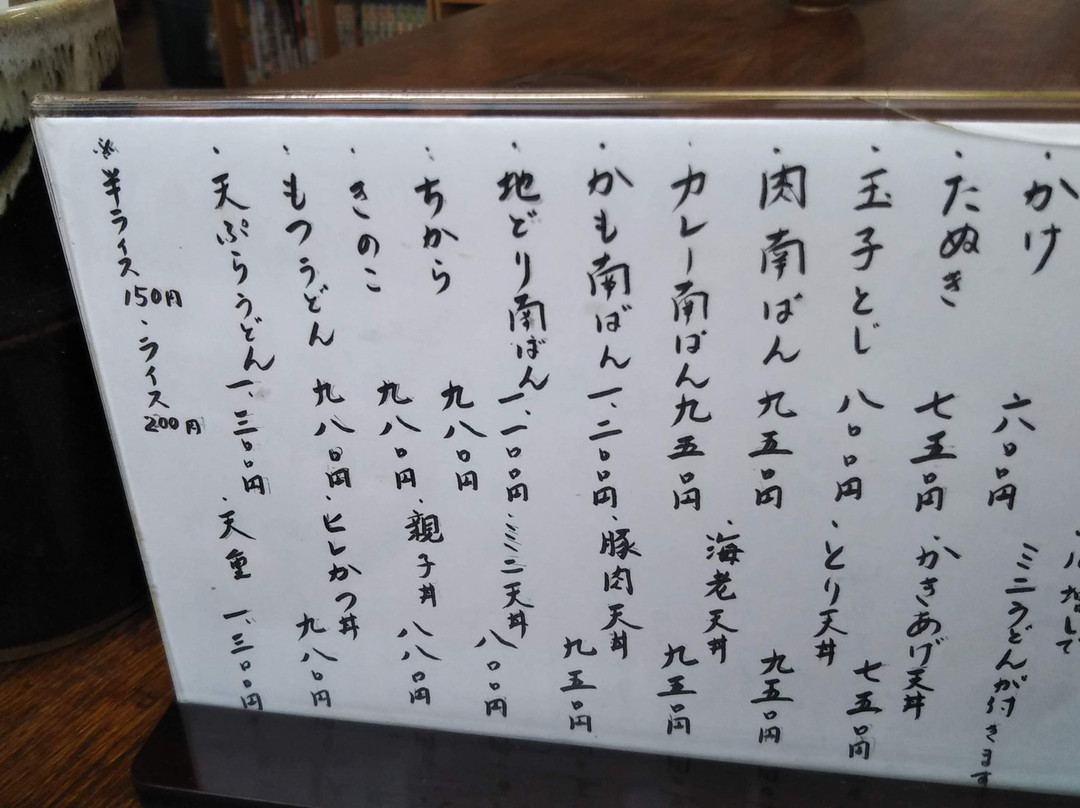 ・かけ 六〇〇円
・たぬき 七五〇円
・玉子とじ 八〇〇円
・肉南ばん 九五〇円
・カレー南ばん 九五〇円
・かも南ばん 一、二〇〇円
・地どり南ばん 一、一〇〇円
・ちから 九八〇円
・きのこ 九八〇円
・もつうどん 九八〇円
・天ぷらうどん 一、三〇〇円
※半ライス 150円
・ライス 200円
増しで
ミニうどんが付きます
・かきあげ天丼 七五〇円
・とり天丼 九五〇円
・海老天丼 九五〇円
・豚肉天丼 九五〇円
・ミニ天丼 八〇〇円
・親子丼 八八〇円
・ヒレかつ丼 九八〇円
・天重 一、三〇〇円